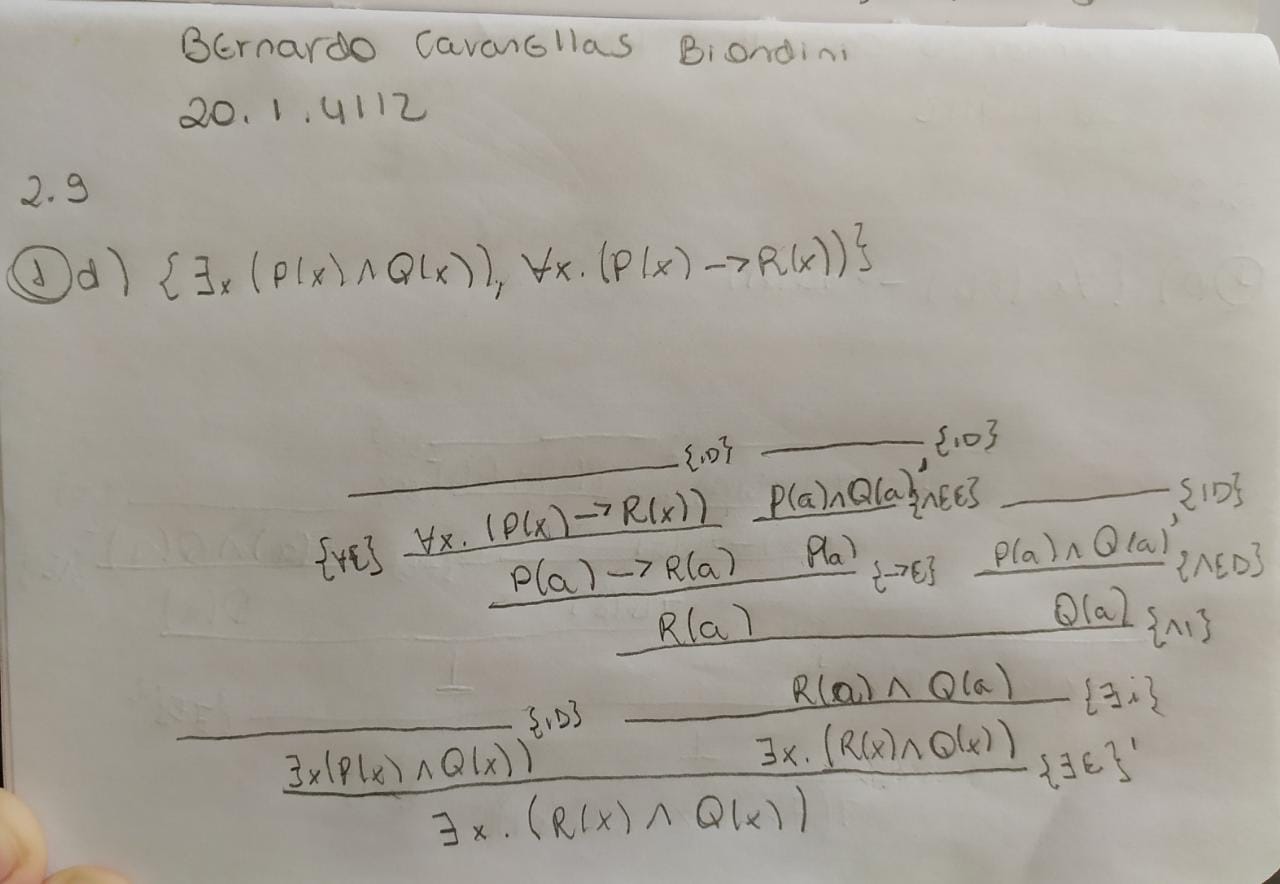 Bernardo Cavanellas Biondini
20.1.4112
2.9
① d) {∃x (P(x) ∧ Q(x)), ∀x. (P(x) → R(x))}
{ID} {ID}
{∀E} ∀x. (P(x) → R(x)) P(a) ∧ Q(a)' {∧EE} {ID}
P(a) → R(a) P(a) {→E} P(a) ∧ Q(a)' {∧ED}
R(a) Q(a) {∧I}
R(a) ∧ Q(a) {∃i}
{ID}
∃x(P(x) ∧ Q(x)) ∃x. (R(x) ∧ Q(x)) {∃E}'
∃x. (R(x) ∧ Q(x))